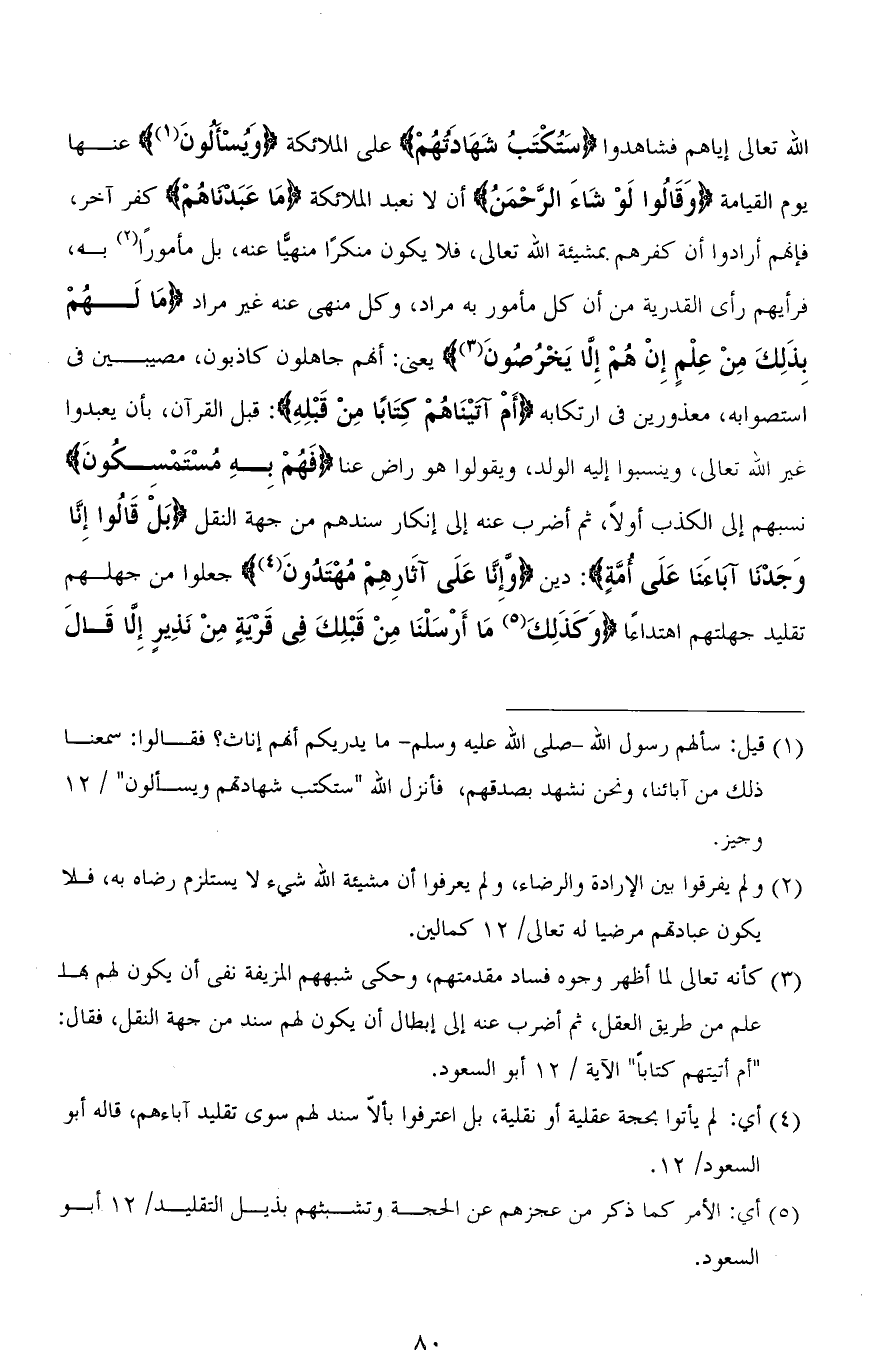 الله تعالى إياهم فشاهدوا ﴿سَتُكْتَبُ شَهَادَتُهُمْ﴾ على الملائكة ﴿وَيُسْأَلُونَ(١)﴾ عنـــها
يوم القيامة ﴿وَقَالُوا لَوْ شَاءَ الرَّحْمَنُ﴾ أن لا نعبد الملائكة ﴿مَا عَبَدْنَاهُمْ﴾ كفر آخر،
فإنهم أرادوا أن كفرهم بمشيئة الله تعالى، فلا يكون منكرًا منهيًّا عنه، بل مأمورًا(٢) بــه،
فرأيهم رأى القدرية من أن كل مأمور به مراد، وكل منهى عنه غير مراد ﴿مَا لَـــهُمْ
بِذَلِكَ مِنْ عِلْمٍ إِنْ هُمْ إِلَّا يَخْرُصُونَ(٣)﴾ يعنى: أنهم جاهلون كاذبون، مصيبـــين فى
استصوابه، معذورين فى ارتكابه ﴿أَمْ آتَيْنَاهُمْ كِتَابًا مِنْ قَبْلِهِ﴾: قبل القرآن، بأن يعبدوا
غير الله تعالى، وينسبوا إليه الولد، ويقولوا هو راض عنا ﴿فَهُمْ بِـــهِ مُسْتَمْسِـكُونَ﴾
نسبهم إلى الكذب أولاً، ثم أضرب عنه إلى إنكار سندهم من جهة النقل ﴿بَلْ قَالُوا إِنَّا
وَجَدْنَا آبَاءَنَا عَلَى أُمَّةٍ﴾: دين ﴿وَّإِنَّا عَلَى آثَارِهِمْ مُهْتَدُونَ(٤)﴾ جعلوا من جهلــهم
تقليد جهلتهم اهتداءًا ﴿وَكَذَلِكَ(٥) مَا أَرْسَلْنَا مِنْ قَبْلِكَ فِى قَرْيَةٍ مِنْ نَذِيرٍ إِلَّا قَــالَ
(١) قيل: سألهم رسول الله -صلى الله عليه وسلم- ما يدريكم أنهم إناث؟ فقـــالوا: سمعنـــا
ذلك من آبائنا، ونحن نشهد بصدقهم، فأنزل الله "ستكتب شهادتهم ويســألون" / ١٢
وجيز.
(٢) ولم يفرقوا بين الإرادة والرضاء، ولم يعرفوا أن مشيئة الله شيء لا يستلزم رضاه به، فــلا
يكون عبادتهم مرضيا له تعالى/ ١٢ كمالين.
(٣) كأنه تعالى لما أظهر وجوه فساد مقدمتهم، وحكى شبههم المزيفة نفى أن يكون لهم بهــا
علم من طريق العقل، ثم أضرب عنه إلى إبطال أن يكون لهم سند من جهة النقل، فقال:
"أم أتيتهم كتاباً" الآية / ١٢ أبو السعود.
(٤) أي: لم يأتوا بحجة عقلية أو نقلية، بل اعترفوا بألاّ سند لهم سوى تقليد آباءهم، قاله أبو
السعود/ ١٢.
(٥) أي: الأمر كما ذكر من عجزهم عن الحجـــة وتشـــبثهم بذيـــل التقليـــد/ ١٢ أبـــو
السعود.
٨٠